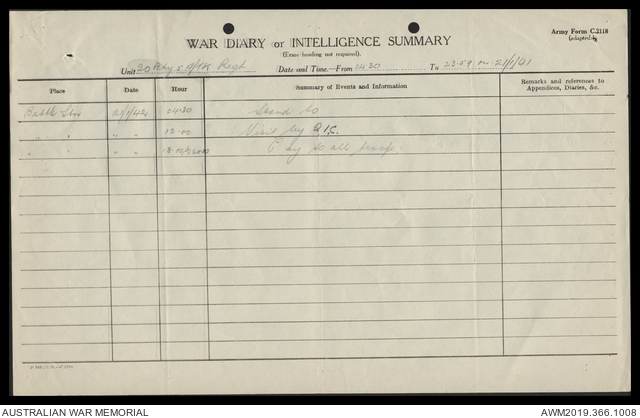 WAR DIARY or INTELLIGENCE SUMMARY
Army Form C.2118
(adapted)
(Erase heading not required).
Unit 20 Bty 5 A/Tk Regt Date and Time.—From 0430 To 23.59 on 21/1/41
Place Date Hour Summary of Events and Information Remarks and references to Appendices, Diaries, &c.
21/1/42 04.30 Stand to
" " " 12.00 Visit by
" " " all troops
AUSTRALIAN WAR MEMORIAL
AWM2019.366.1008